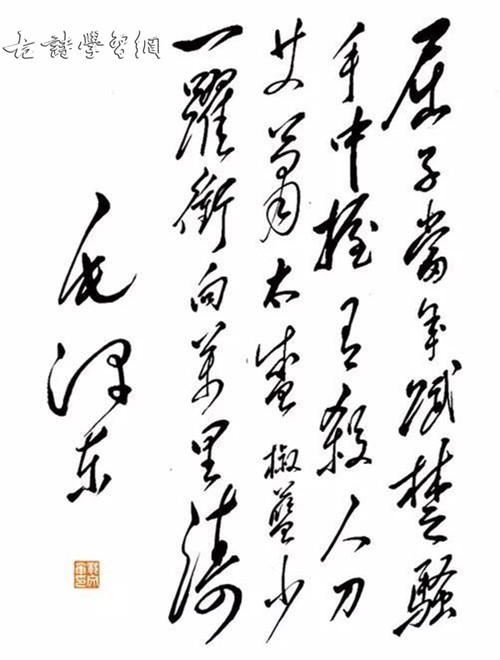 古詩學習網
屈子當年賦楚騷
手中握有殺人刀
艾蕭太盛椒藍少
一躍衝向萬里濤
毛澤東